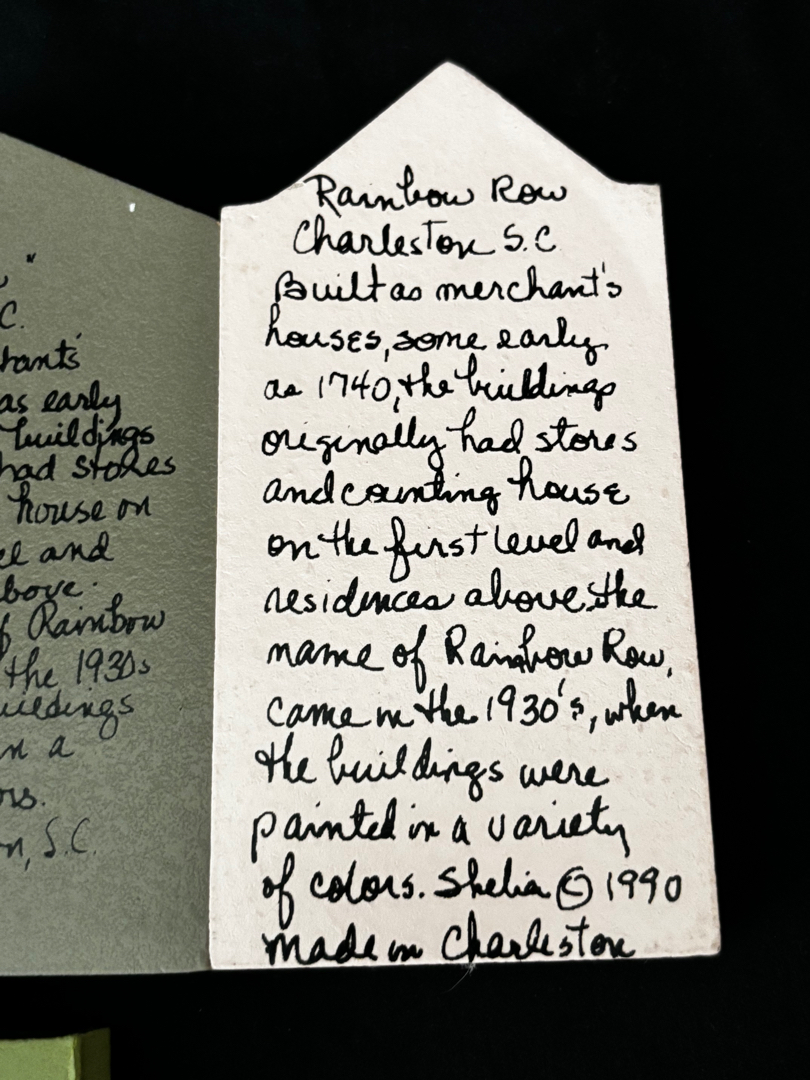 "
C.
hants'
as early
buildings
had stores
house on
and
bove.
Rainbow
the 1930s
uildings
in a
ors.
n, S.C.
Rainbow Row
Charleston S.C
Built as merchant's
houses, some early
as 1740, the buildings
originally had stores
and counting house
on the first level and
residences above. the
name of Rainbow Row,
came in the 1930's, when
the buildings were
painted in a variety
of colors. Shelia © 1990
made in Charleston